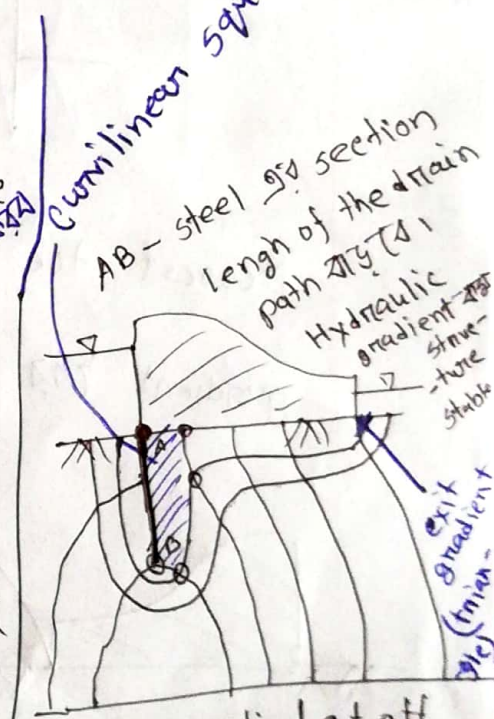 Curvilinear squ
AB - steel এর section
lengh of the drain
path বাড়বে।
Hydraulic
gradient
struc-
-ture
stable
A
B
exit
gradient
(trian-
gle)